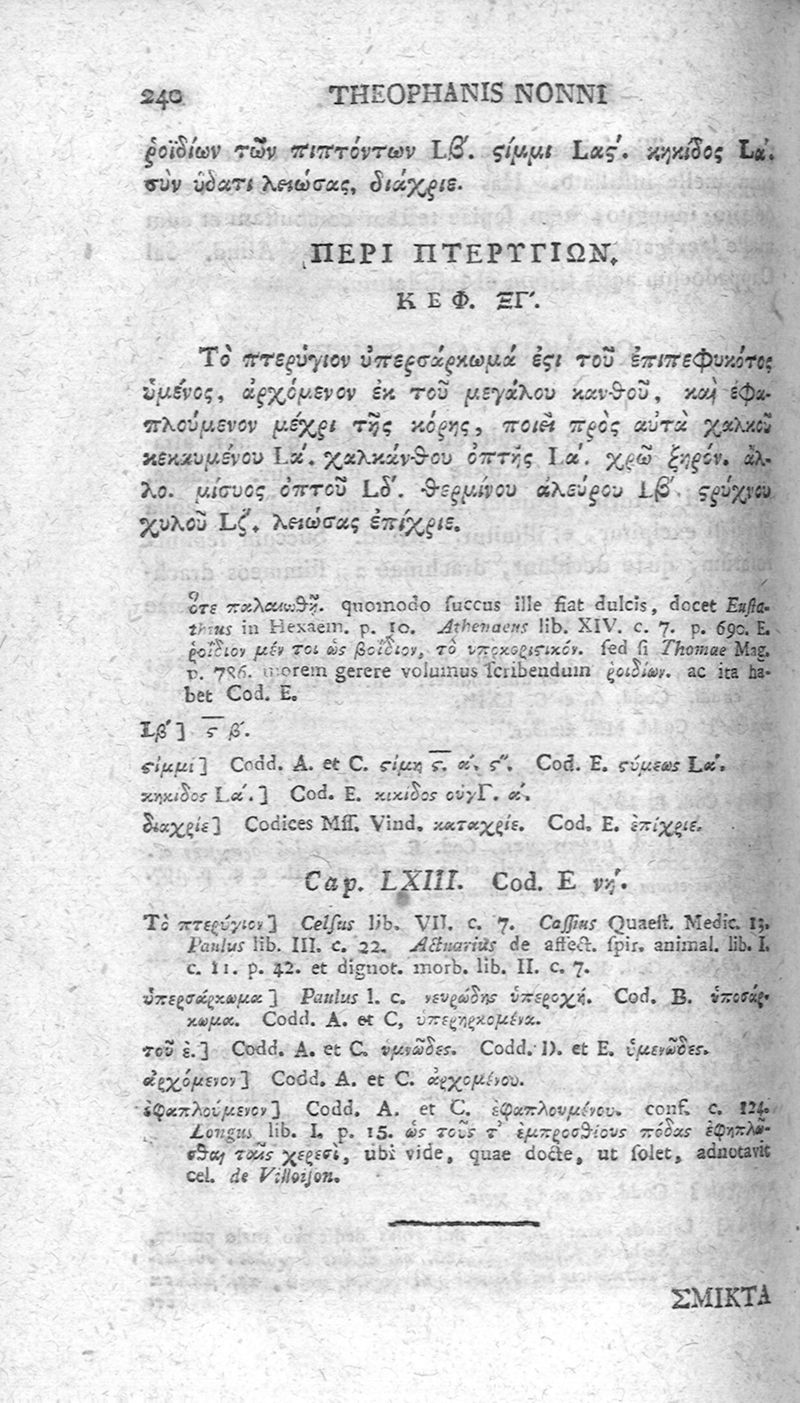 240 THEOPHANIS NONNI
ῥοϊδίων τῶν πιπτόντων Lβ´. ϛίμμι Lαϛ´. κηκίδος Lα´.
σὺν ὕδατι λειώσας, διάχριε.
ΠΕΡΙ ΠΤΕΡΥΓΙΩΝ.
ΚΕΦ. ΞΓ´.
Τὸ πτερύγιον ὑπερσάρκωμά ἐϛι τοῦ ἐπιπεφυκότος
ὑμένος, ἀρχόμενον ἐκ τοῦ μεγάλου κανθοῦ, καὶ ἐφα-
πλούμενον μέχρι τῆς κόρης, ποιεῖ πρὸς αὐτὰ χαλκοῦ
κεκαυμένου Lα´. χαλκάνθου ὀπτῆς Lα´. χρῶ ξηρόν. ἄλ-
λο. μίσυος ὀπτοῦ Lδ´. θερμίνου ἀλεύρου Lβ´. ϛρύχνου
χυλοῦ Lζ´. λειώσας ἐπίχριε.
ὅτε παλαιωθῇ. quomodo ſuccus ille fiat dulcis, docet Euſta-
thius in Hexaem. p. 10. Athenaeus lib. XIV. c. 7. p. 690. E.
ῥοΐδιον μέν τοι ὡς βοΐδιον, τὸ ὑποκοριστικόν. ſed ſi Thomae Mag.
p. 786. morem gerere volumus ſcribendum ῥοιδίων. ac ita ha-
bet Cod. E.
Lβ´] ϛ β´.
ϛίμμι] Codd. A. et C. ϛίμη ϛ. α´. ϛ´´. Cod. E. ϛύμεως Lα´.
κηκίδος Lα´.] Cod. E. κικίδος οὐγΓ. α´.
διαχρίε] Codices Mſſ. Vind. καταχρίε. Cod. E. ἐπίχριε.
Cap. LXIII. Cod. E νη´.
Τὸ πτερύγιον] Celſus lib. VII. c. 7. Caſſius Quaeſt. Medic. 13.
Paulus lib. III. c. 22. Actuarius de affect. ſpir. animal. lib. I.
c. 11. p. 42. et dignot. morb. lib. II. c. 7.
ὑπερσάρκωμα] Paulus l. c. νευρώδης ὑπεροχή. Cod. B. ὑποσάρ-
κωμα. Codd. A. et C, ὑπερηρκομένα.
τοῦ ἐ.] Codd. A. et C. υμνῶδες. Codd. D. et E. ὑμενῶδες.
ἀρχόμενον] Codd. A. et C. ἀρχομένου.
ἐφαπλούμενον] Codd. A. et C. ἐφαπλουμένου. conf. c. 124.
Longus lib. I. p. 15. ὡς τοὺς τ᾽ ἐμπροσθίους πόδας ἐφηπλῶ-
σθαι ταῖς χερσὶ, ubi vide, quae docte, ut ſolet, adnotavit
cel. de Villoiſon.
ΣΜΙΚΤΑ